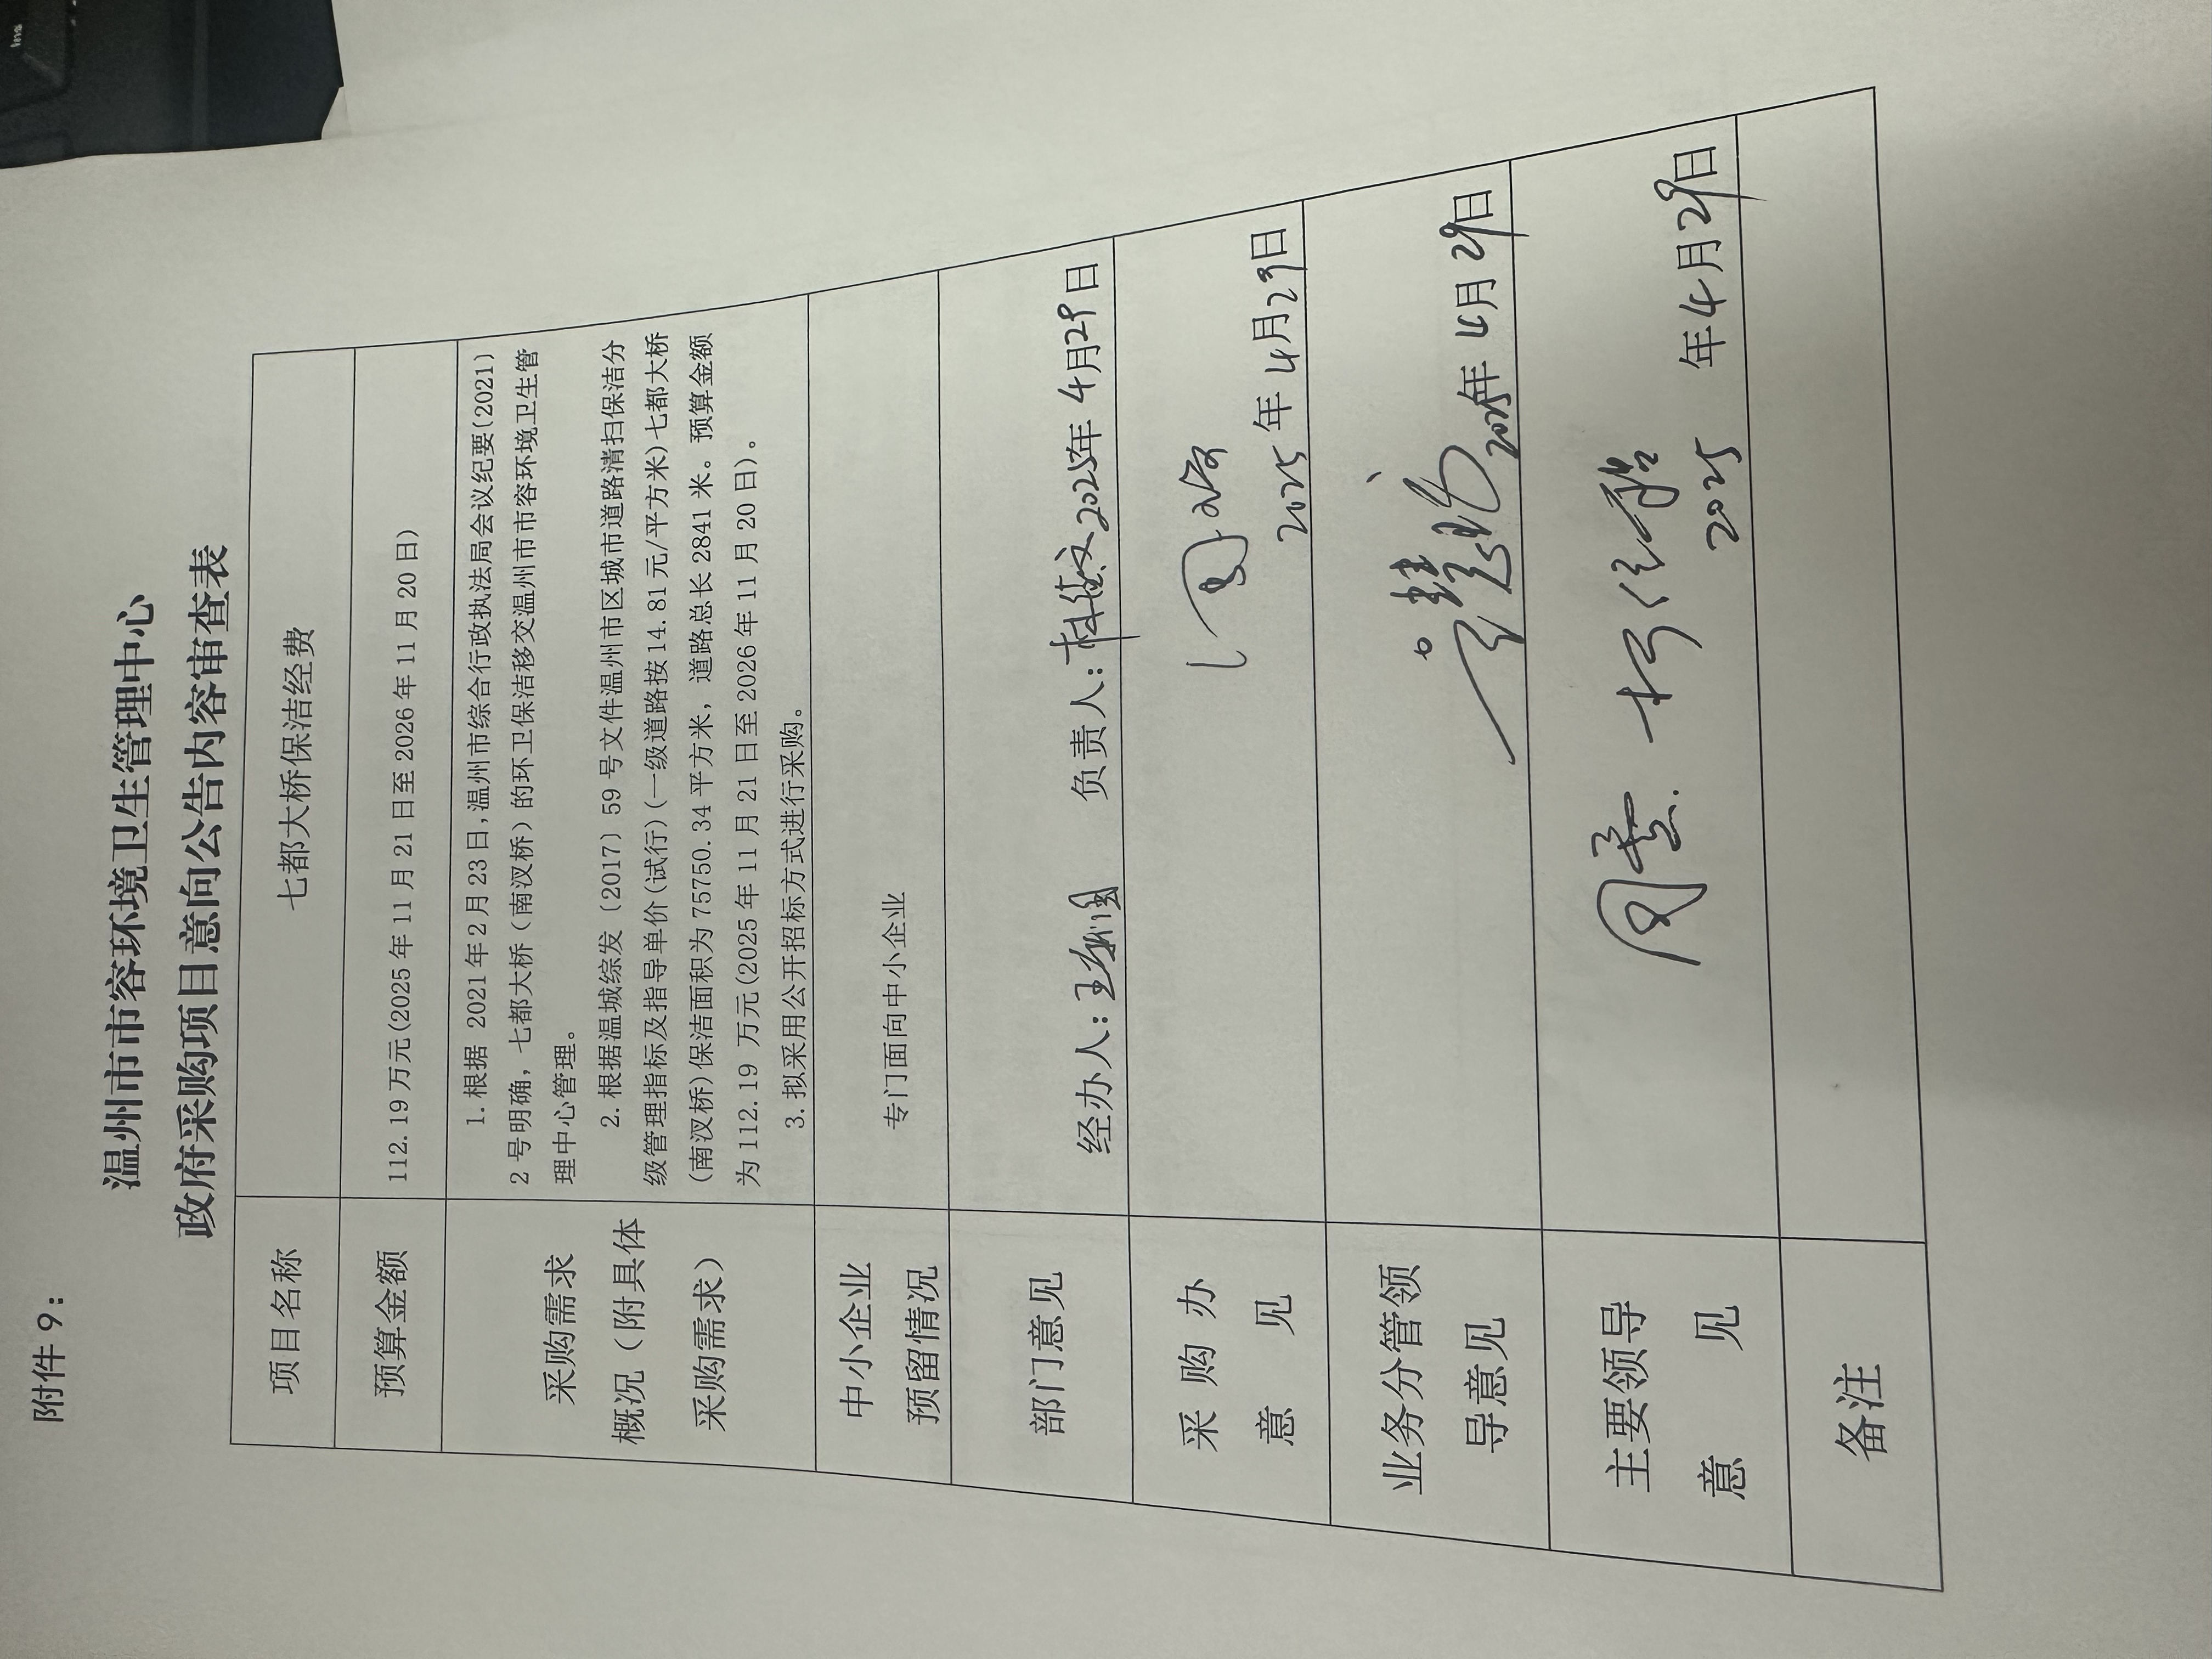 附件 9：
温州市市容环境卫生管理中心
政府采购项目意向公告内容审查表
项目名称
七都大桥保洁经费
预算金额
112.19 万元(2025 年 11 月 21 日至 2026 年 11 月 20 日)
采购需求
概况（附具体
采购需求）
1.根据 2021 年 2 月 23 日,温州市综合行政执法局会议纪要(2021)
2 号明确，七都大桥（南汊桥）的环卫保洁移交温州市市容环境卫生管
理中心管理。
2.根据温城综发（2017）59 号文件温州市区城市道路清扫保洁分
级管理指标及指导单价(试行)(一级道路按 14.81 元/平方米)七都大桥
(南汊桥)保洁面积为 75750.34 平方米，道路总长 2841 米。预算金额
为 112.19 万元(2025 年 11 月 21 日至 2026 年 11 月 20 日)。
3.拟采用公开招标方式进行采购。
中小企业
预留情况
专门面向中小企业
部门意见
经办人： 负责人： 2025年 4月29日
采 购 办
意 见
2025年 4月29日
业务分管领
导意见
2025年 4月29日
主要领导
意 见
2025 年4月29日
备注
Ins